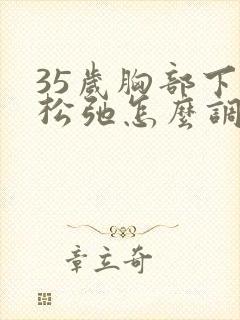 35歲胸部下
松弛怎麼調
章立奇